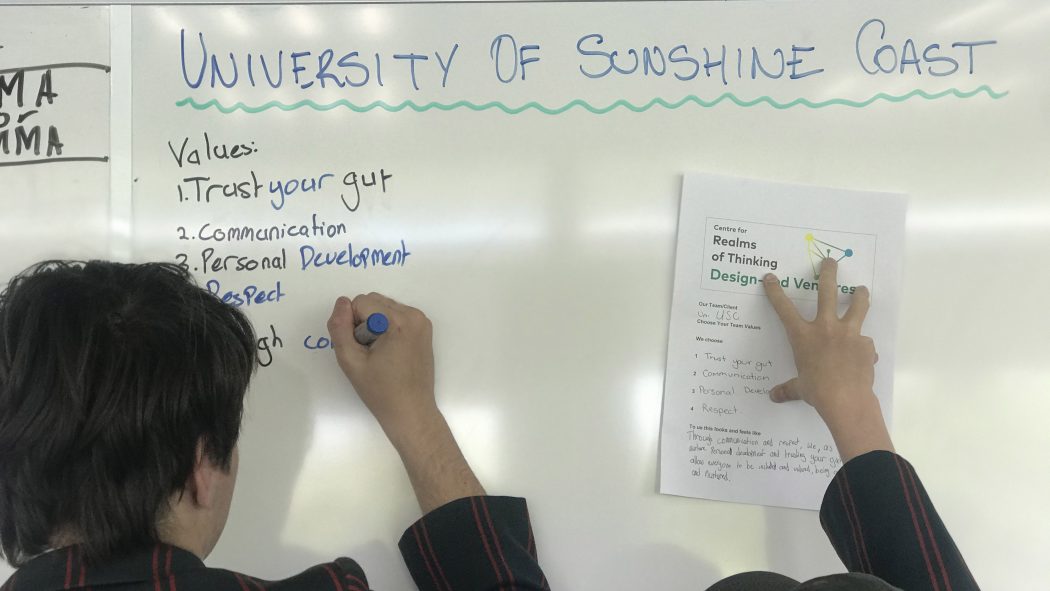 MMA
UNIVERSITY OF SUNSHINE COAST
Values:
1. Trust your gut
2. Communication
3. Personal Development
Respect
Centre for
Realms
of Thinking
Design-
Our Team/Client
USC
Choose Your Team Values
We choose
1 Trust your gut
2 Communication
3 Personal
4 Respect.
To us this looks and feels like
Through communication and respect, we, as
Personal development and trusting your
allow everyone to be included and valued, being
and nurtured.